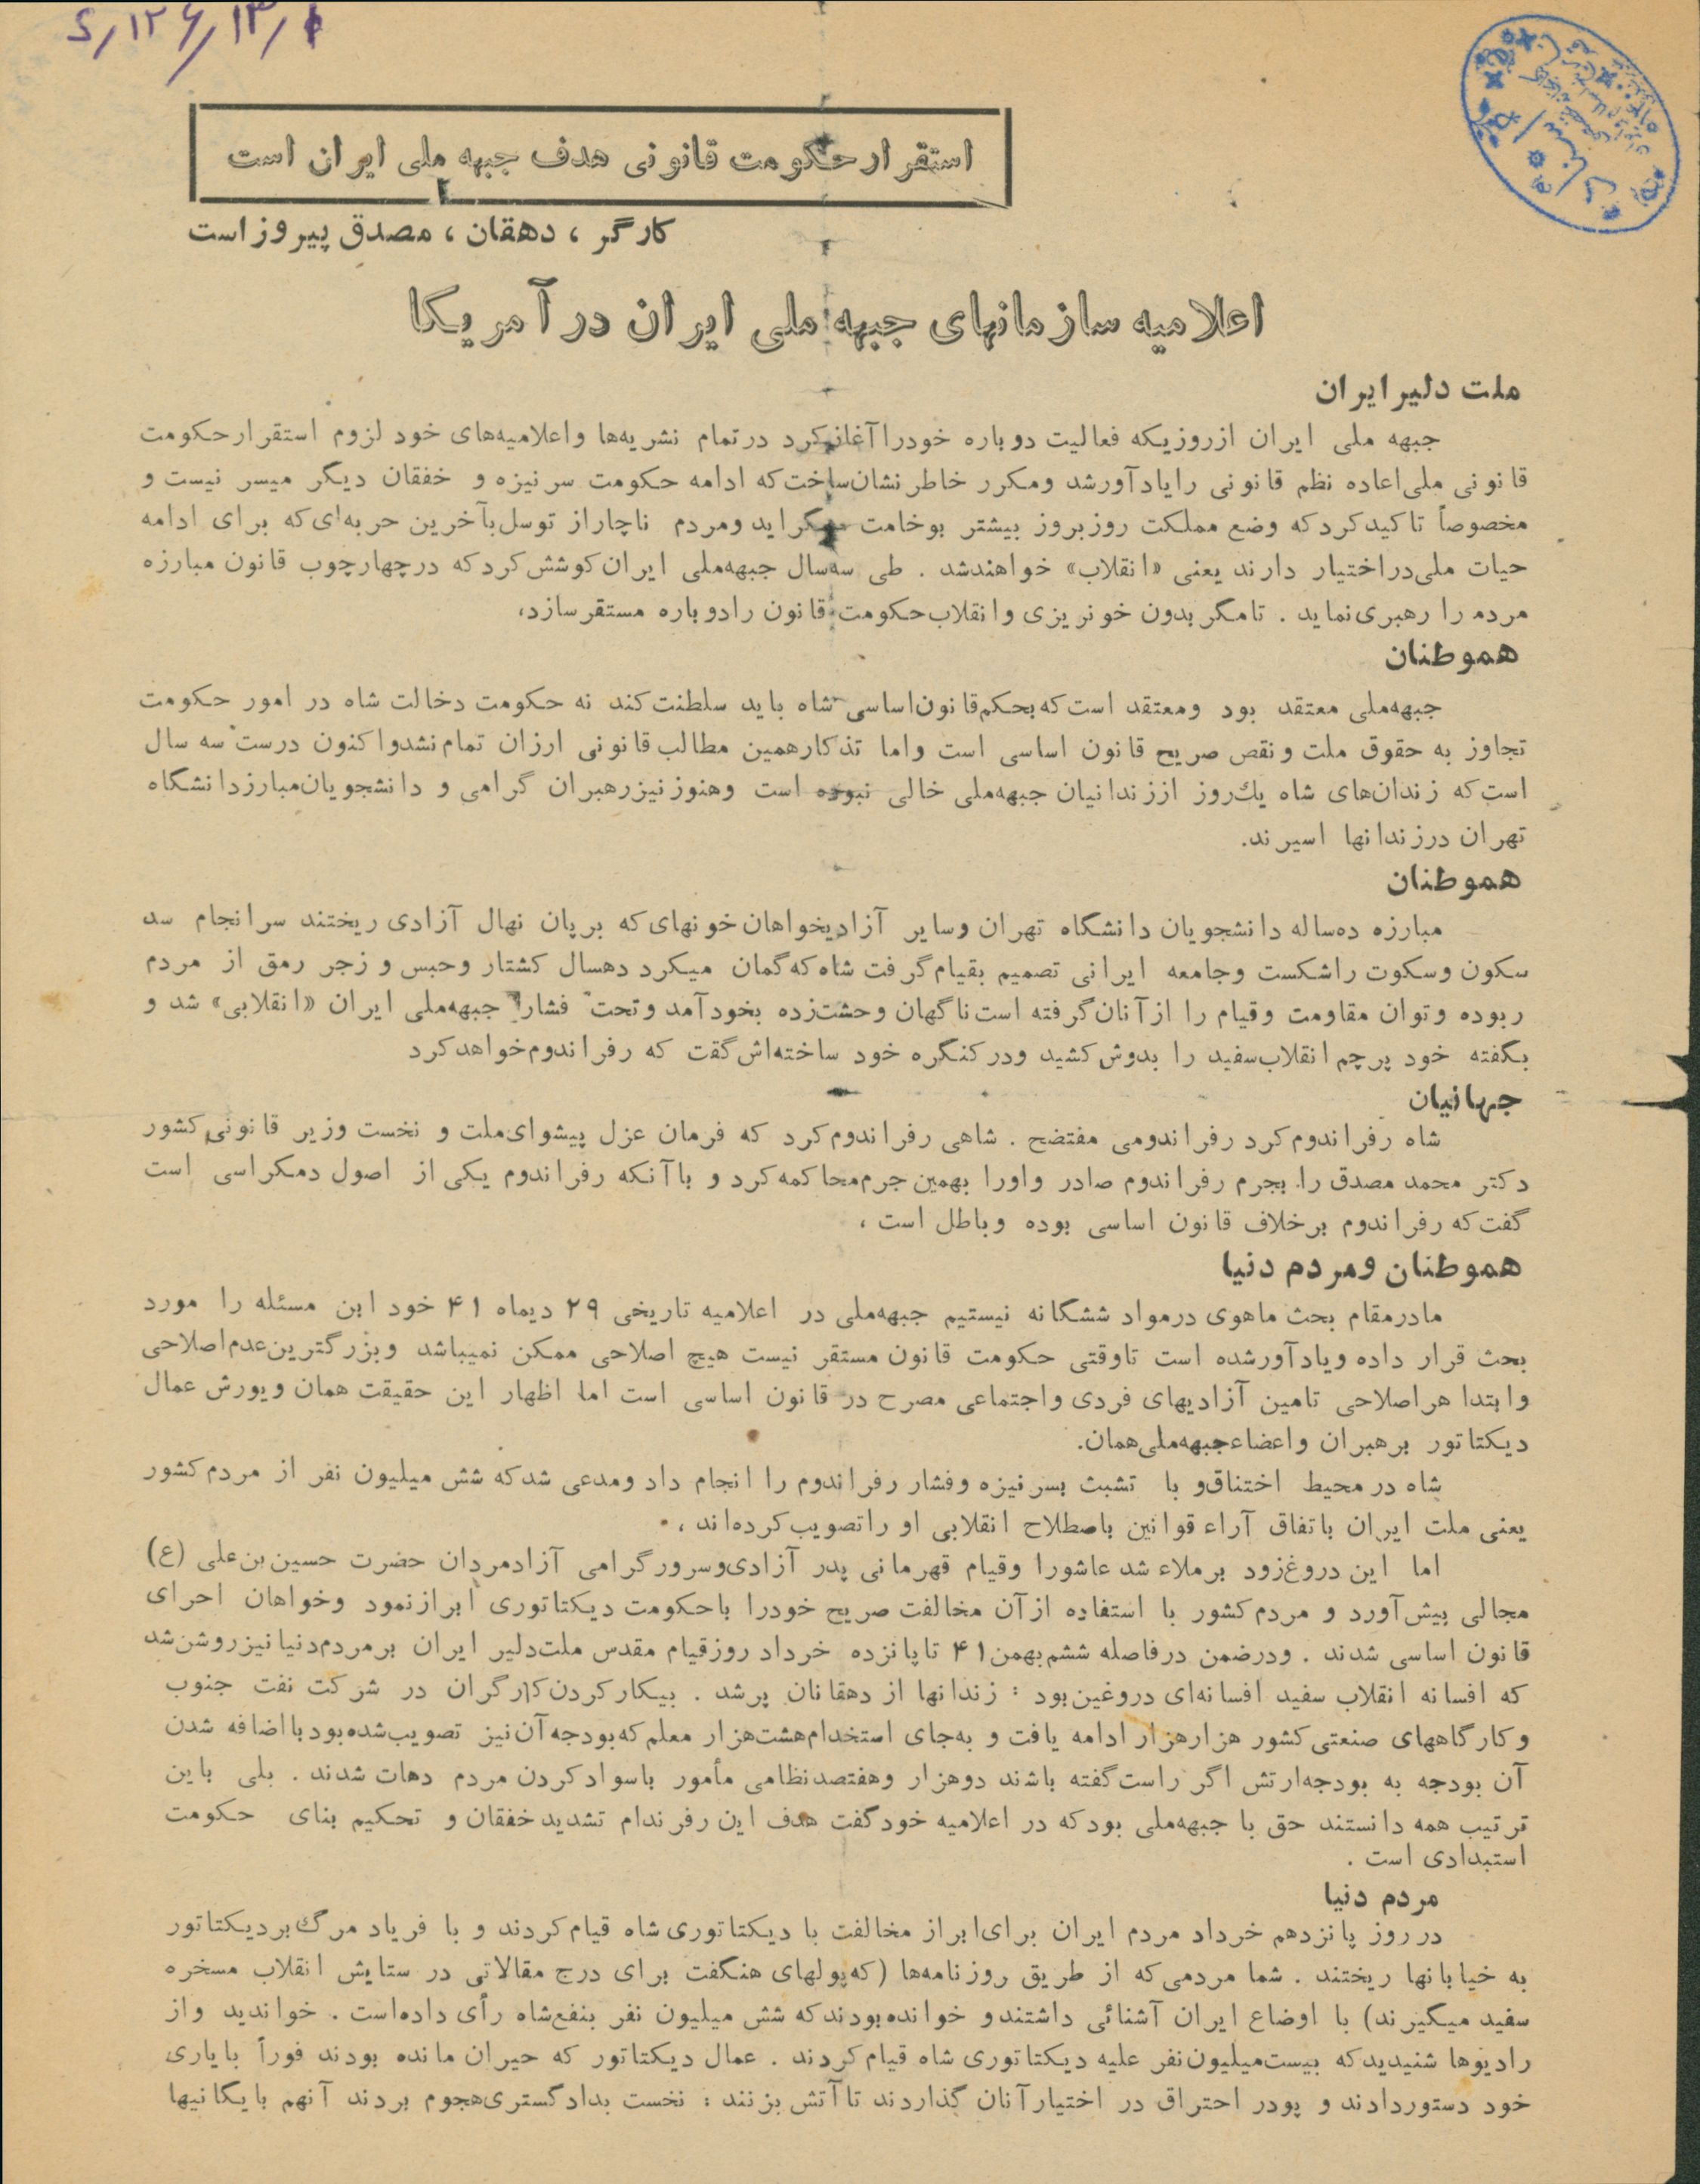 ۵/۱۲۶/۱۳/۱
استقرار حکومت قانونی هدف جبهه ملی ایران است
کارگر ، دهقان ، مصدق پیروز است
اعلامیه سازمانهای جبهه ملی ایران در آمریکا
ملت دلیر ایران
جبهه ملی ایران از روزیکه فعالیت دوباره خود را آغاز کرد در تمام نشریه‌ها و اعلامیه‌های خود لزوم استقرار حکومت
قانونی ملی اعاده نظم قانونی را یادآور شد و مکرر خاطر نشان ساخت که ادامه حکومت سر نیزه و خفقان دیگر میسر نیست و
مخصوصاً تاکید کرد که وضع مملکت روز بروز بیشتر بوخامت میگراید و مردم ناچار از توسل بآخرین حربه‌ای که برای ادامه
حیات ملی در اختیار دارند یعنی «انقلاب» خواهند شد . طی سه سال جبهه ملی ایران کوشش کرد که در چهارچوب قانون مبارزه
مردم را رهبری نماید . تا مگر بدون خونریزی و انقلاب حکومت قانون را دوباره مستقر سازد،
هموطنان
جبهه ملی معتقد بود و معتقد است که بحکم قانون اساسی شاه باید سلطنت کند نه حکومت دخالت شاه در امور حکومت
تجاوز به حقوق ملت و نقص صریح قانون اساسی است و اما تذکار همین مطالب قانونی ارزان تمام نشد و اکنون درست سه سال
است که زندان‌های شاه یك روز از زندانیان جبهه ملی خالی نبوده است و هنوز نیز رهبران گرامی و دانشجویان مبارز دانشگاه
تهران در زندانها اسیرند.
هموطنان
مبارزه ده ساله دانشجویان دانشگاه تهران و سایر آزادیخواهان خونهای که بر پان نهال آزادی ریختند سر انجام سد
سکون و سکوت را شکست و جامعه ایرانی تصمیم بقیام گرفت شاه که گمان میکرد دهسال کشتار و حبس و زجر رمق از مردم
ربوده و توان مقاومت و قیام را از آنان گرفته است ناگهان وحشت‌زده بخود آمد و تحت فشار جبهه ملی ایران «انقلابی» شد و
بگفته خود پرچم انقلاب سفید را بدوش کشید و در کنگره خود ساخته‌اش گفت که رفراندوم خواهد کرد
جهانیان
شاه رفراندوم کرد رفراندومی مفتضح . شاهی رفراندوم کرد که فرمان عزل پیشوای ملت و نخست وزیر قانونی کشور
دکتر محمد مصدق را بجرم رفراندوم صادر و او را بهمین جرم محاکمه کرد و با آنکه رفراندوم یکی از اصول دمکراسی است
گفت که رفراندوم بر خلاف قانون اساسی بوده و باطل است ،
هموطنان و مردم دنیا
ما در مقام بحث ماهوی در مواد ششگانه نیستیم جبهه ملی در اعلامیه تاریخی ۲۹ دیماه ۴۱ خود این مسئله را مورد
بحث قرار داده و یادآور شده است تا وقتی حکومت قانون مستقر نیست هیچ اصلاحی ممکن نمیباشد و بزرگترین عدم اصلاحی
و ابتدا هر اصلاحی تامین آزادیهای فردی و اجتماعی مصرح در قانون اساسی است اما اظهار این حقیقت همان و یورش عمال
دیکتاتور بر هبران و اعضاء جبهه ملی همان.
شاه در محیط اختناق و با تشبث بسر نیزه و فشار رفراندوم را انجام داد و مدعی شد که شش میلیون نفر از مردم کشور
یعنی ملت ایران باتفاق آراء قوانین باصطلاح انقلابی او را تصویب کرده‌اند ،
اما این دروغ زود بر ملاء شد عاشورا و قیام قهرمانی پدر آزادی و سرور گرامی آزادمردان حضرت حسین بن علی (ع)
مجالی بیش آورد و مردم کشور با استفاده از آن مخالفت صریح خود را با حکومت دیکتاتوری ابراز نمود و خواهان احرای
قانون اساسی شدند . و در ضمن در فاصله ششم بهمن ۴۱ تا پانزده خرداد روز قیام مقدس ملت دلیر ایران بر مردم دنیا نیز روشن شد
که افسانه انقلاب سفید افسانه‌ای دروغین بود : زندانها از دهقانان پر شد . بیکار کردن کارگران در شرکت نفت جنوب
و کارگاههای صنعتی کشور هزار هزار ادامه یافت و به جای استخدام هشت هزار معلم که بودجه آن نیز تصویب شده بود با اضافه شدن
آن بودجه به بودجه ارتش اگر راست گفته باشند دو هزار و هفتصد نظامی مأمور باسواد کردن مردم دهات شدند . بلی باین
ترتیب همه دانستند حق با جبهه ملی بود که در اعلامیه خود گفت هدف این رفرندام تشدید خفقان و تحکیم بنای حکومت
استبدادی است .
مردم دنیا
در روز پانزدهم خرداد مردم ایران برای ابراز مخالفت با دیکتاتوری شاه قیام کردند و با فریاد مرگ بر دیکتاتور
به خیابانها ریختند . شما مردمی که از طریق روزنامه‌ها (که پولهای هنگفت برای درج مقالاتی در ستایش انقلاب مسخره
سفید میگیرند) با اوضاع ایران آشنائی داشتند و خوانده بودند که شش میلیون نفر بنفع شاه رأی داده است . خواندید و از
رادیوها شنیدید که بیست میلیون نفر علیه دیکتاتوری شاه قیام کردند . عمال دیکتاتور که حیران مانده بودند فوراً با یاری
خود دستور دادند و پودر احتراق در اختیار آنان گذاردند تا آتش بزنند : نخست بدادگستری هجوم بردند آنهم بایگانیها